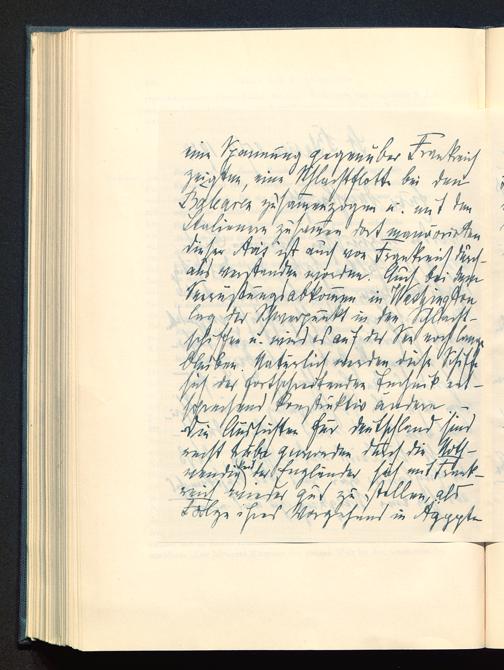 eine Spannung gegenüber Frankreich
zeigten, eine Schlachtflotte bei den
Balearen zusammenzogen u. mit den
Italienern zusammen dort manövrierten
dieser Satz ist auch von Frankreich durch-
aus verstanden worden. Auch bei dem
Abrüstungsabkommen in Washington
lag der Schwerpunkt in den Schlacht-
schiffen u. wird es auf der See noch lange
bleiben. Natürlich werden diese Schiffe
sich der fortschreitenden Technik ent-
sprechend konstruktiv ändern. –
Die Aussichten für Deutschland sind
recht trübe geworden durch die Not-
wendigkeit der Engländer sich mit Frank-
reich wieder gut zu stellen, als
Folge ihres Vorgehens in Ägypten